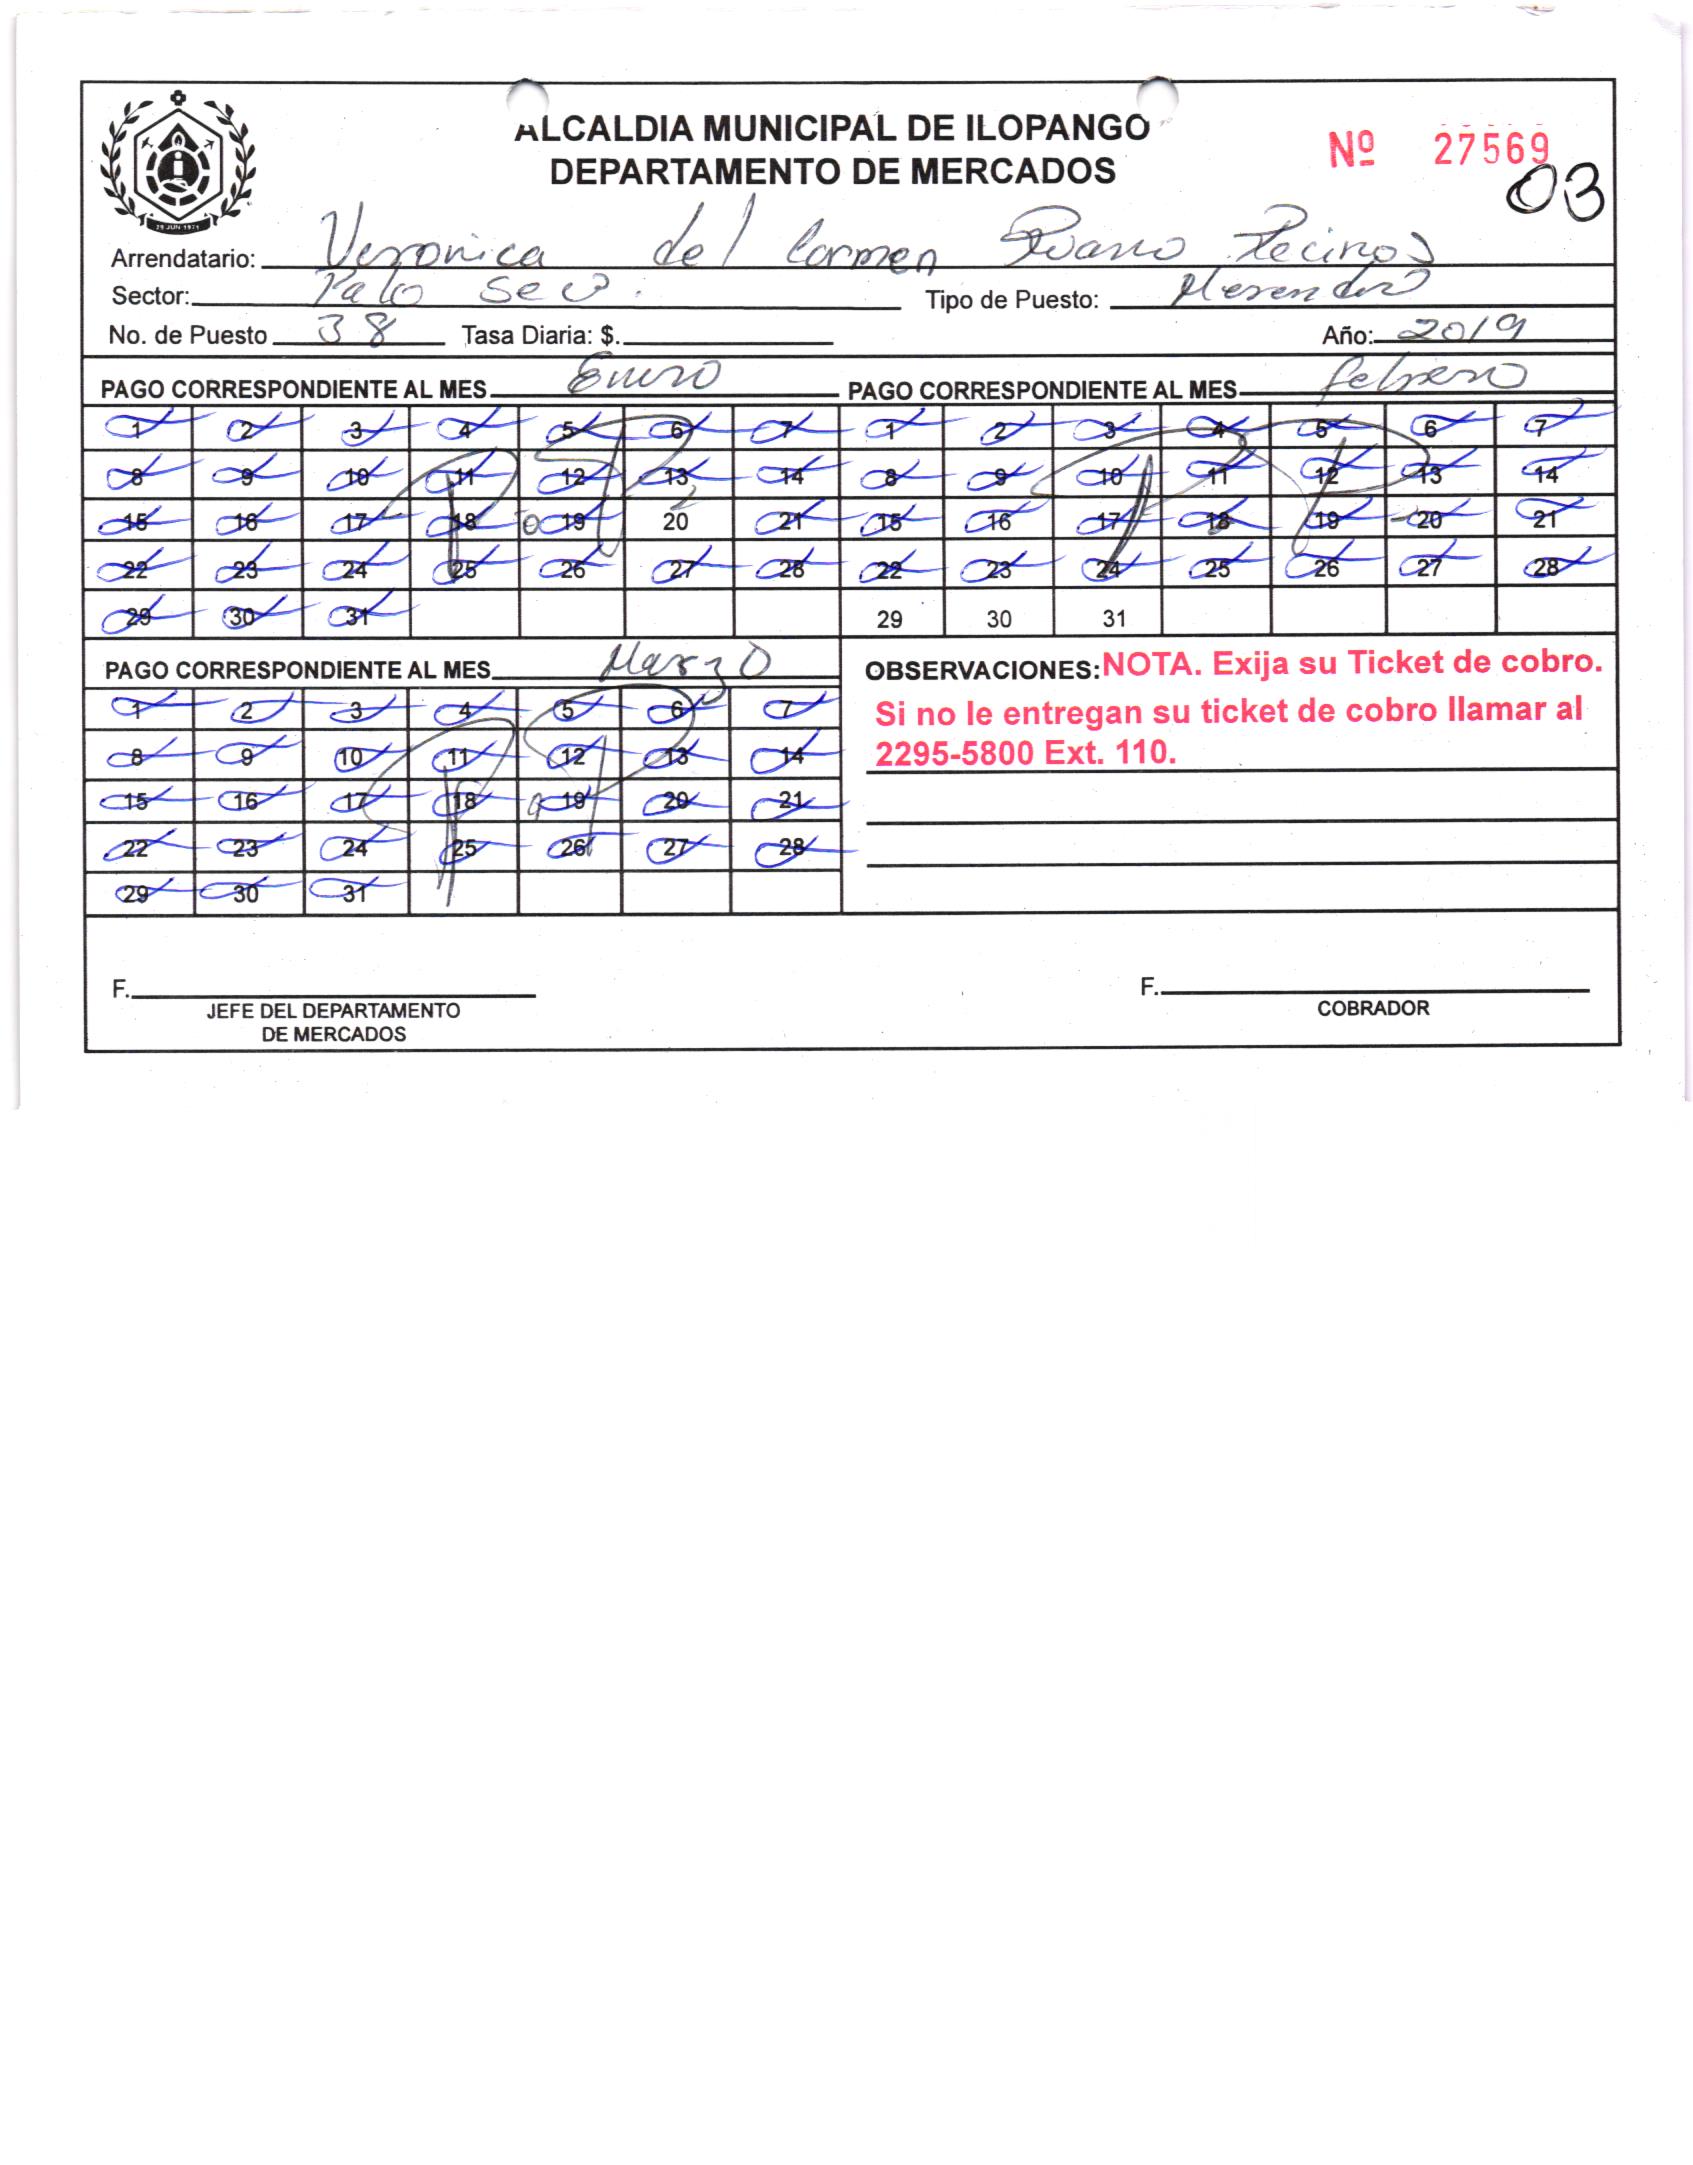 ALCALDIA MUNICIPAL DE ILOPANGO
DEPARTAMENTO DE MERCADOS
Nº 27569
03
29 JUN 1971
Arrendatario: Veronica del Carmen Recinos
Sector: Palo Seco. Tipo de Puesto: Merendero
No. de Puesto 38 Tasa Diaria: $. Año: 2019
PAGO CORRESPONDIENTE AL MES Enero PAGO CORRESPONDIENTE AL MES febrero
1 2 3 4 5 6 7 1 2 3 4 5 6 7
8 9 10 11 12 13 14 8 9 10 11 12 13 14
15 16 17 18 19 20 21 15 16 17 18 19 20 21
22 23 24 25 26 27 28 22 23 24 25 26 27 28
29 30 31 29 30 31
PAGO CORRESPONDIENTE AL MES Marzo
1 2 3 4 5 6 7
8 9 10 11 12 13 14
15 16 17 18 19 20 21
22 23 24 25 26 27 28
29 30 31
OBSERVACIONES: NOTA. Exija su Ticket de cobro.
Si no le entregan su ticket de cobro llamar al
2295-5800 Ext. 110.
F.
JEFE DEL DEPARTAMENTO
DE MERCADOS
F.
COBRADOR